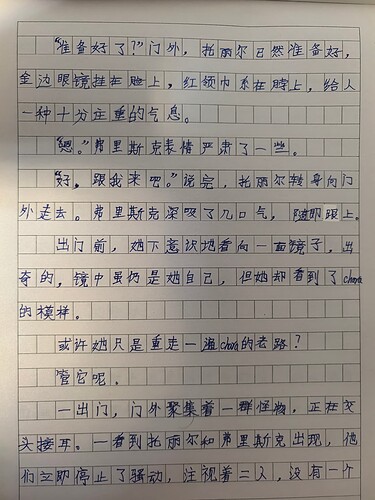 "准备好了?"门外，托丽尔已然准备好，
金边眼镜挂在脸上，红领巾系在脖上，给人
一种十分庄重的气息。
"嗯。"弗里斯克表情严肃了一些。
"好，跟我来吧。"说完，托丽尔转身向门
外走去。弗里斯克深吸了几口气，随即跟上。
出门前，她下意识地看向一面镜子，出
奇的，镜中虽仍是她自己，但她却看到了chara
的模样。
或许她只是重走一遍chara的老路?
管它呢。
一出门，门外聚集着一群怪物，正在交
头接耳。一看到托丽尔和弗里斯克出现，他
们立即停止了骚动，注视着二人，没有一个